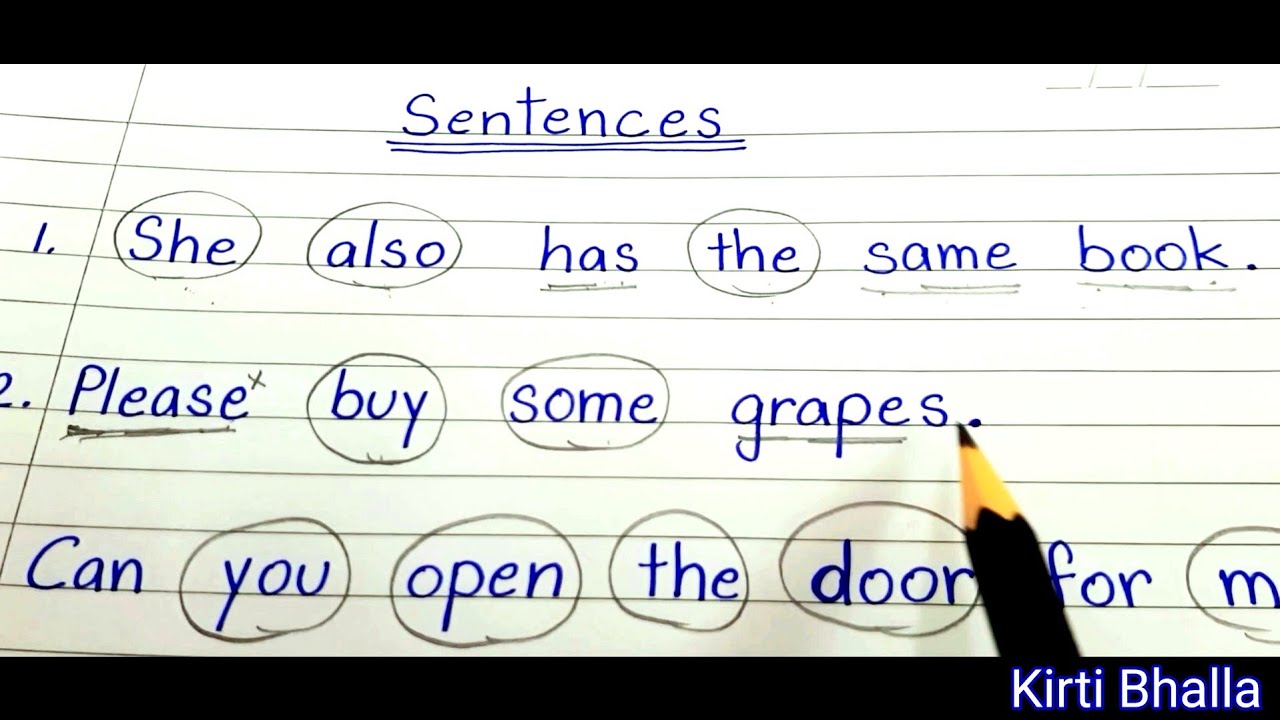 Sentences
1. She also has the same book.
2. Please buy some grapes.
Can you open the door for
Kirti Bhalla